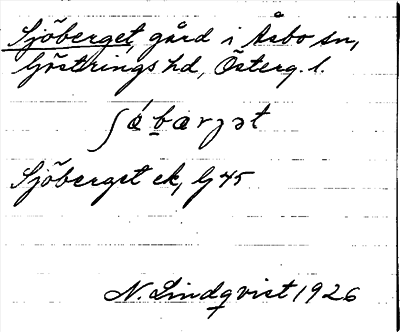 Sjöberget, gård i Åsbo sn,
Göstrings hd, Österg. l.
ʃǿbærjət
Sjöberget ek, G 45
N. Lindqvist 1926